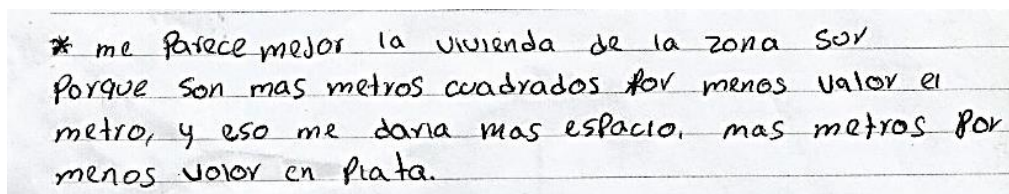 * me Parece mejor la vivienda de la zona sur
Porque son mas metros cuadrados por menos valor el
metro, y eso me daria mas espacio, mas metros por
menos valor en Plata.